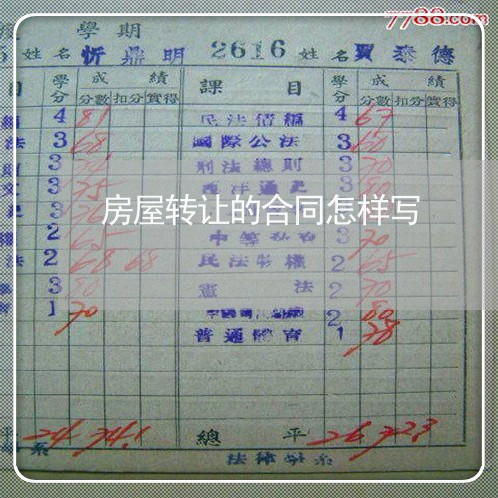 7788.com
學期
姓名 忻鼎明 2616 姓名 賈泰德
目 學分 成績 課目 學分 成績
分數 扣分 實得 分數 扣分 實得
4 81 民法債編 4 67
法 3 68 國際公法 3 60
3 刑法總則 3 70
文 3 75 西洋通史 3 80
房屋转让的合同怎样写
權 2 65 3 70
法 2 68 68 民法物權 2 65
3 80 憲法 2 70
1 70 中國 2 80
普通體育 1 78
平 24 74.1 總平 26 72.3
系 法律學系